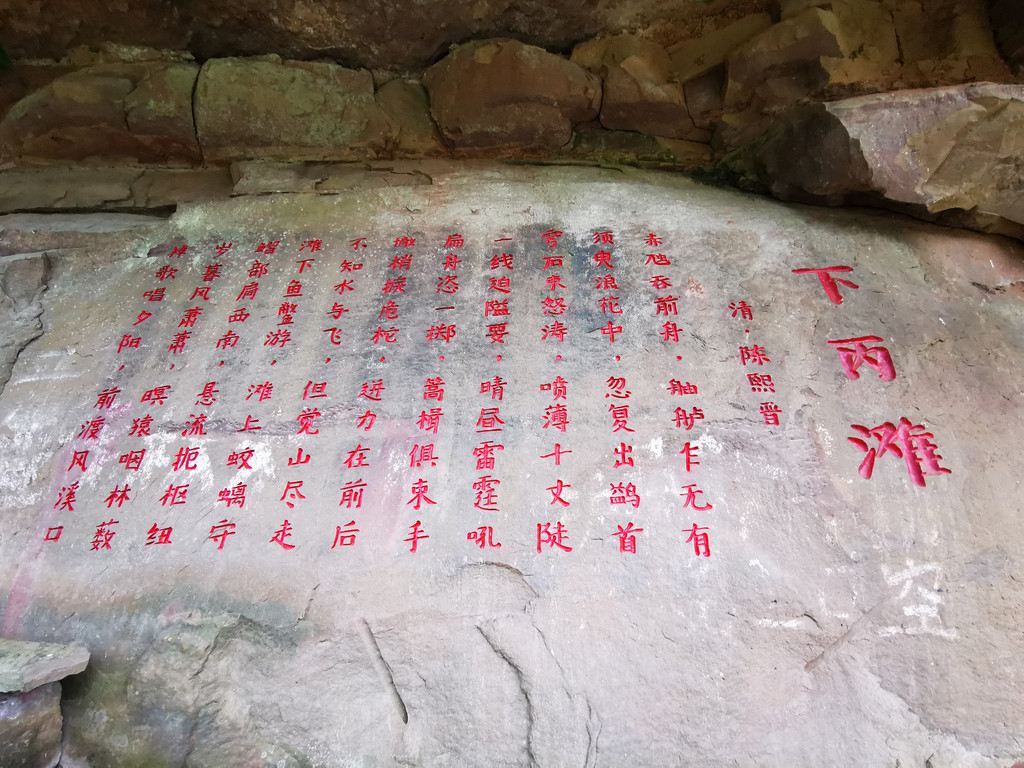 下丙滩
清·陈熙晋
赤虺吞前舟，舳舻乍无有
须臾浪花中，忽复出鹢首
穹石束怒涛。喷薄十丈陡
一线迫隘要，晴昼雷霆吼
扁舟恣一掷，蒿楫俱束手
撇捎捩危柁，迸力在前后
不知水与飞，但觉山尽走
滩下鱼鳖游，滩上蛟螭守
鳛部扃西南，悬流扼枢纽
岁暮风萧萧，暝猿咽林薮
棹歌唱夕阳，前渡风溪口